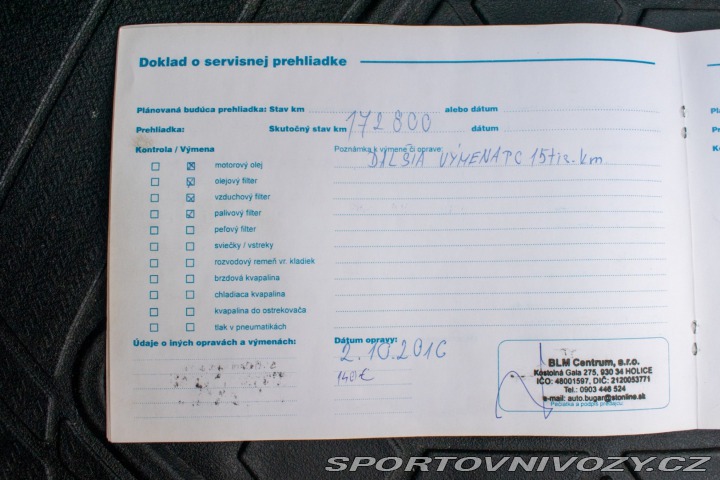 Doklad o servisnej prehliadke
Plánovaná budúca prehliadka: Stav km alebo dátum
Prehliadka: Skutočný stav km 172 800 dátum
Kontrola / Výmena Poznámka k výmene či oprave:
motorový olej ĎALŠIA VÝMENA PO 15tis. km
olejový filter
vzduchový filter
palivový filter
peľový filter
sviečky / vstreky
rozvodový remeň vr. kladiek
brzdová kvapalina
chladiaca kvapalina
kvapalina do ostrekovača
tlak v pneumatikách
Údaje o iných opravách a výmenách: Dátum opravy:
2.10.2016
140€
BLM Centrum, s.r.o.
Kostolná Gala 275, 930 34 HOLICE
IČO: 48001597, DIČ: 2120053771
Tel.: 0903 446 524
e-mail: auto.bugar@stonline.sk
Pečiatka a podpis predajcu
SPORTOVNIVOZY.CZ